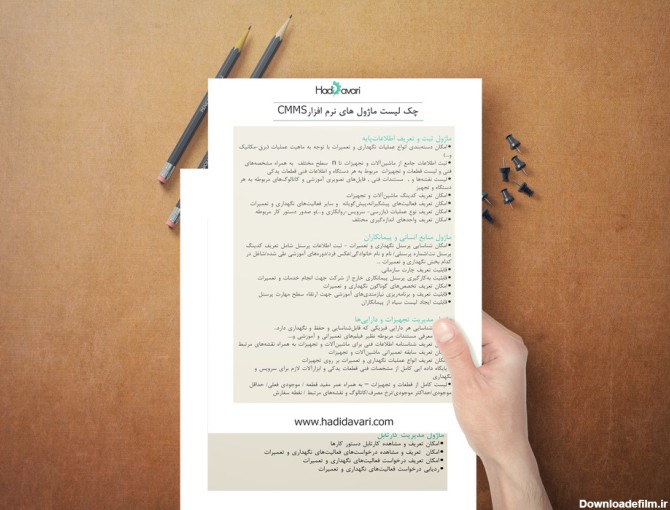 Hadi Davari
چک لیست ماژول های نرم افزار CMMS
ماژول ثبت و تعریف اطلاعات‌پایه
●امکان دسته‌بندی انواع عملیات نگهداری و تعمیرات با توجه به ماهیت عملیات (برق-مکانیک
و..)
●ثبت اطلاعات جامع از ماشین‌آلات و تجهیزات تا n سطح مختلف به همراه مشخصه‌های
فنی و لیست قطعات و تجهیزات مربوط به هر دستگاه و اطلاعات فنی قطعات یدکی
●لیست نقشه‌ها و .. مستندات فنی , فایل‌های تصویری آموزشی و کاتالوگ‌های مربوطه به هر
دستگاه و تجهیز
●امکان تعریف کدینگ ماشین‌آلات و تجهیزات
●امکان تعریف فعالیت‌های پیشگیرانه،پیش‌گویانه و سایر فعالیت‌های نگهداری و تعمیرات
●امکان تعریف نوع عملیات (بازرسی- سرویس-روانکاری و..)و صدور دستور کار مربوطه
●امکان تعریف واحدهای اندازه‌گیری مختلف
ماژول منابع انسانی و پیمانکاران
●امکان شناسایی پرسنل نگهداری و تعمیرات – ثبت اطلاعات پرسنل شامل تعریف کدینگ
پرسنل نت/شماره پرسنلی/ نام و نام خانوادگی/عکس فرد/دوره‌های آموزشی طی شده/شاغل در
کدام بخش نگهداری و تعمیرات ..
●قابلیت تعریف چارت سازمانی
●قابلیت به‌کارگیری پرسنل پیمانکاری خارج از شرکت جهت انجام خدمات و تعمیرات
●امکان تعریف تخصص‌های گوناگون نگهداری و تعمیرات
●قابلیت تعریف و برنامه‌ریزی نیازمندی‌های آموزشی جهت ارتقاء سطح مهارت پرسنل
●قابلیت ایجاد لیست سیاه از پیمانکاران
مدیریت تجهیزات و دارایی‌ها
شناسایی هر دارایی فیزیکی که قابل‌شناسایی و حفظ و نگهداری دارد.
معرفی مستندات مربوطه نظیر فیلم‌های تعمیراتی و آموزشی و…
تعریف شناسنامه اطلاعات فنی برای ماشین‌آلات و تجهیزات به همراه نقشه‌های مرتبط
تعریف سابقه تعمیراتی ماشین‌آلات و تجهیزات
امکان تعریف انواع عملیات نگهداری و تعمیرات بر روی تجهیزات
پایگاه داده ایی کامل از مشخصات فنی قطعات یدکی و ابزارآلات لازم برای سرویس و
نگهداری
●لیست کامل از قطعات و تجهیزات – به همراه عمر مفید قطعه / موجودی فعلی/ حداقل
موجودی/حداکثر موجودی/نرخ مصرف/کاتالوگ و نقشه‌های مرتبط / نقطه سفارش
www.hadidavari.com
ماژول مدیریت کارتابل
●امکان تعریف و مشاهده کارتابل دستور کارها
●امکان تعریف و مشاهده درخواست‌های فعالیت‌های نگهداری و تعمیرات
●امکان تعریف درخواست فعالیت‌های نگهداری و تعمیرات
●ردیابی درخواست فعالیت‌های نگهداری و تعمیرات
Downloadefilm.ir